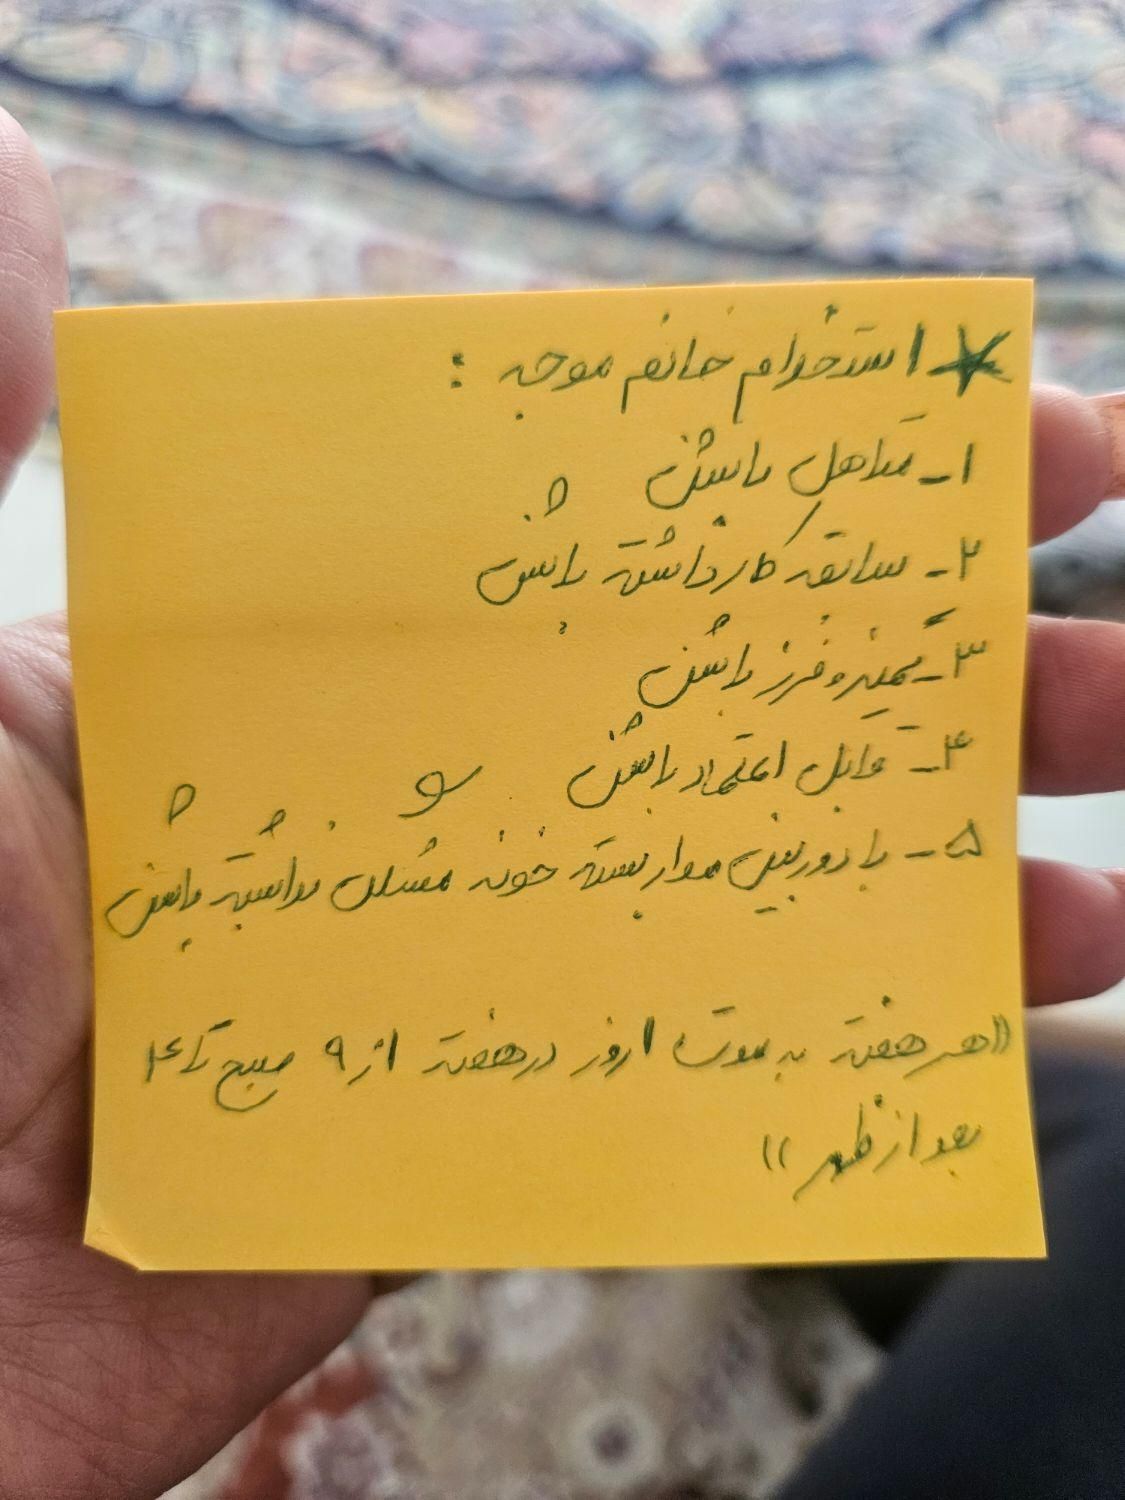 * استخدام خانم موجه :
۱- متاهل باشن
۲- سابقه کار داشته باشن
۳- تمیز و فرز باشن
۴- قابل اعتماد باشن
۵- با دوربین مدار بسته خونه مشکل نداشته باشن
"هر هفته به صورت ۱ روز در هفته از ۹ صبح تا ۴
بعد از ظهر"